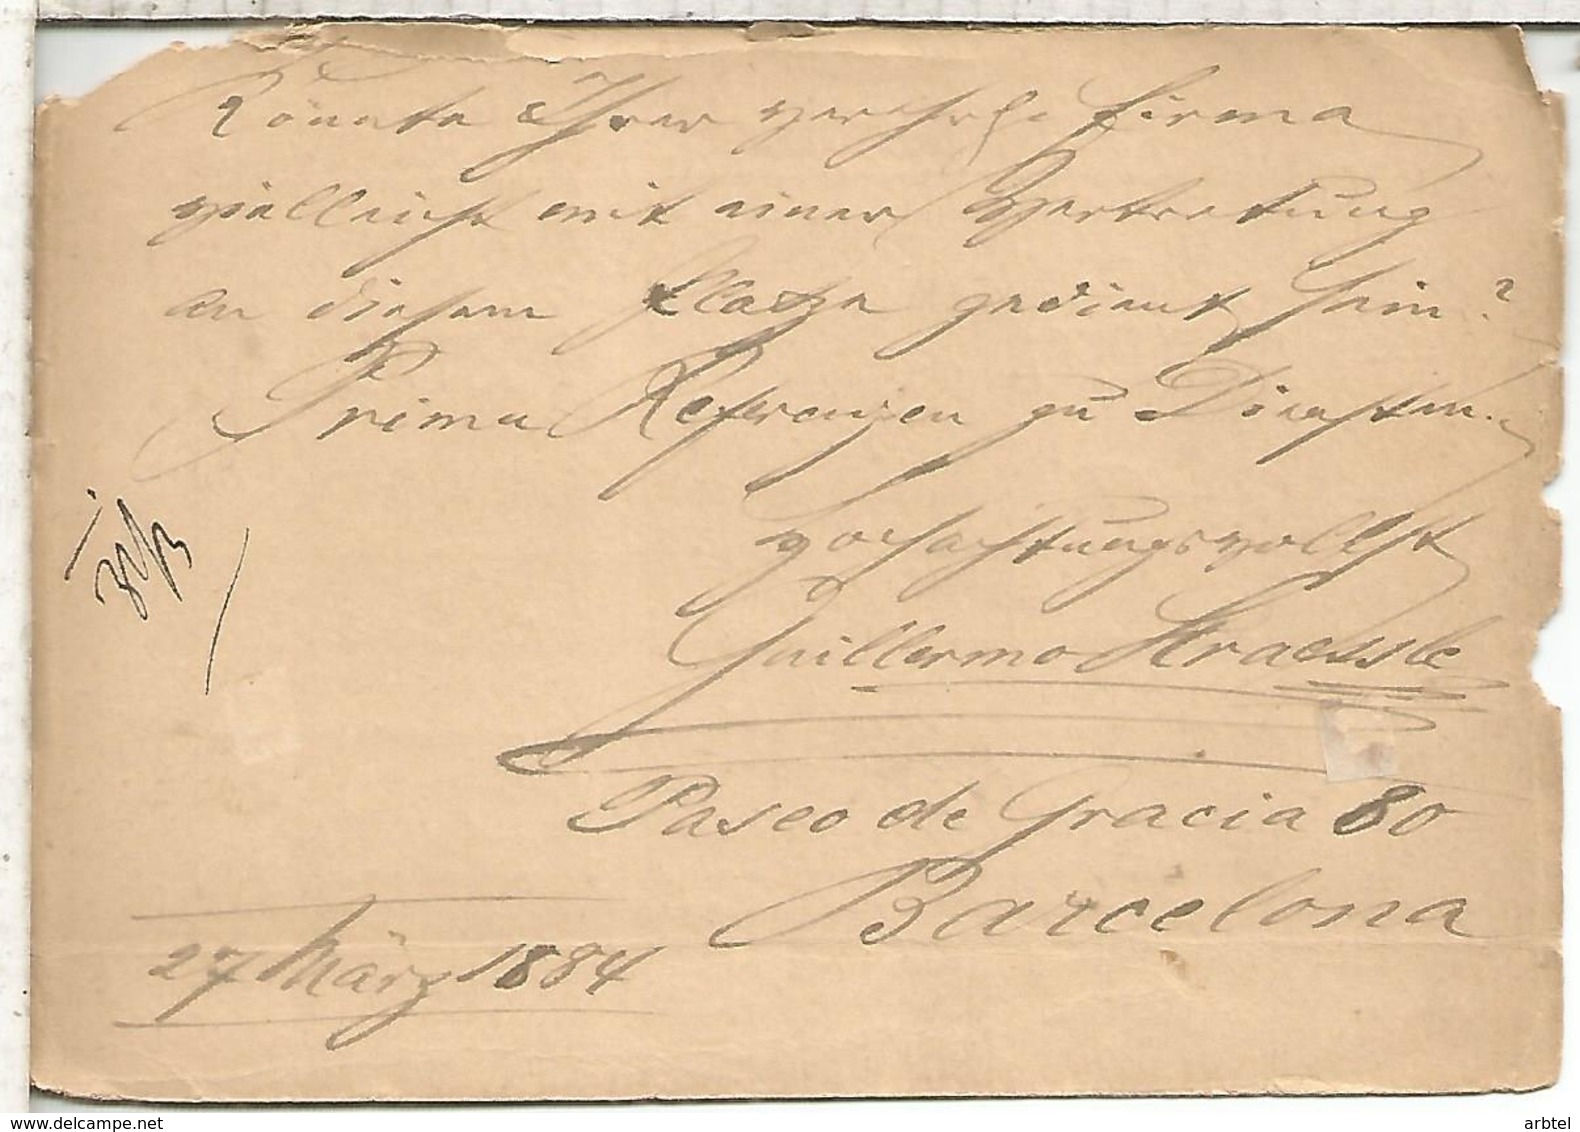 Könnte Ihrer verehrl. Firma
vielleicht mit einer Vertretung
an diesem Platze gedient sein?
Prima Referenzen zu Diensten.
Hochachtungsvollst
Guillermo Kraessle
Paseo de Gracia 80
Barcelona
27 März 1884
www.delcampe.net
arbtel